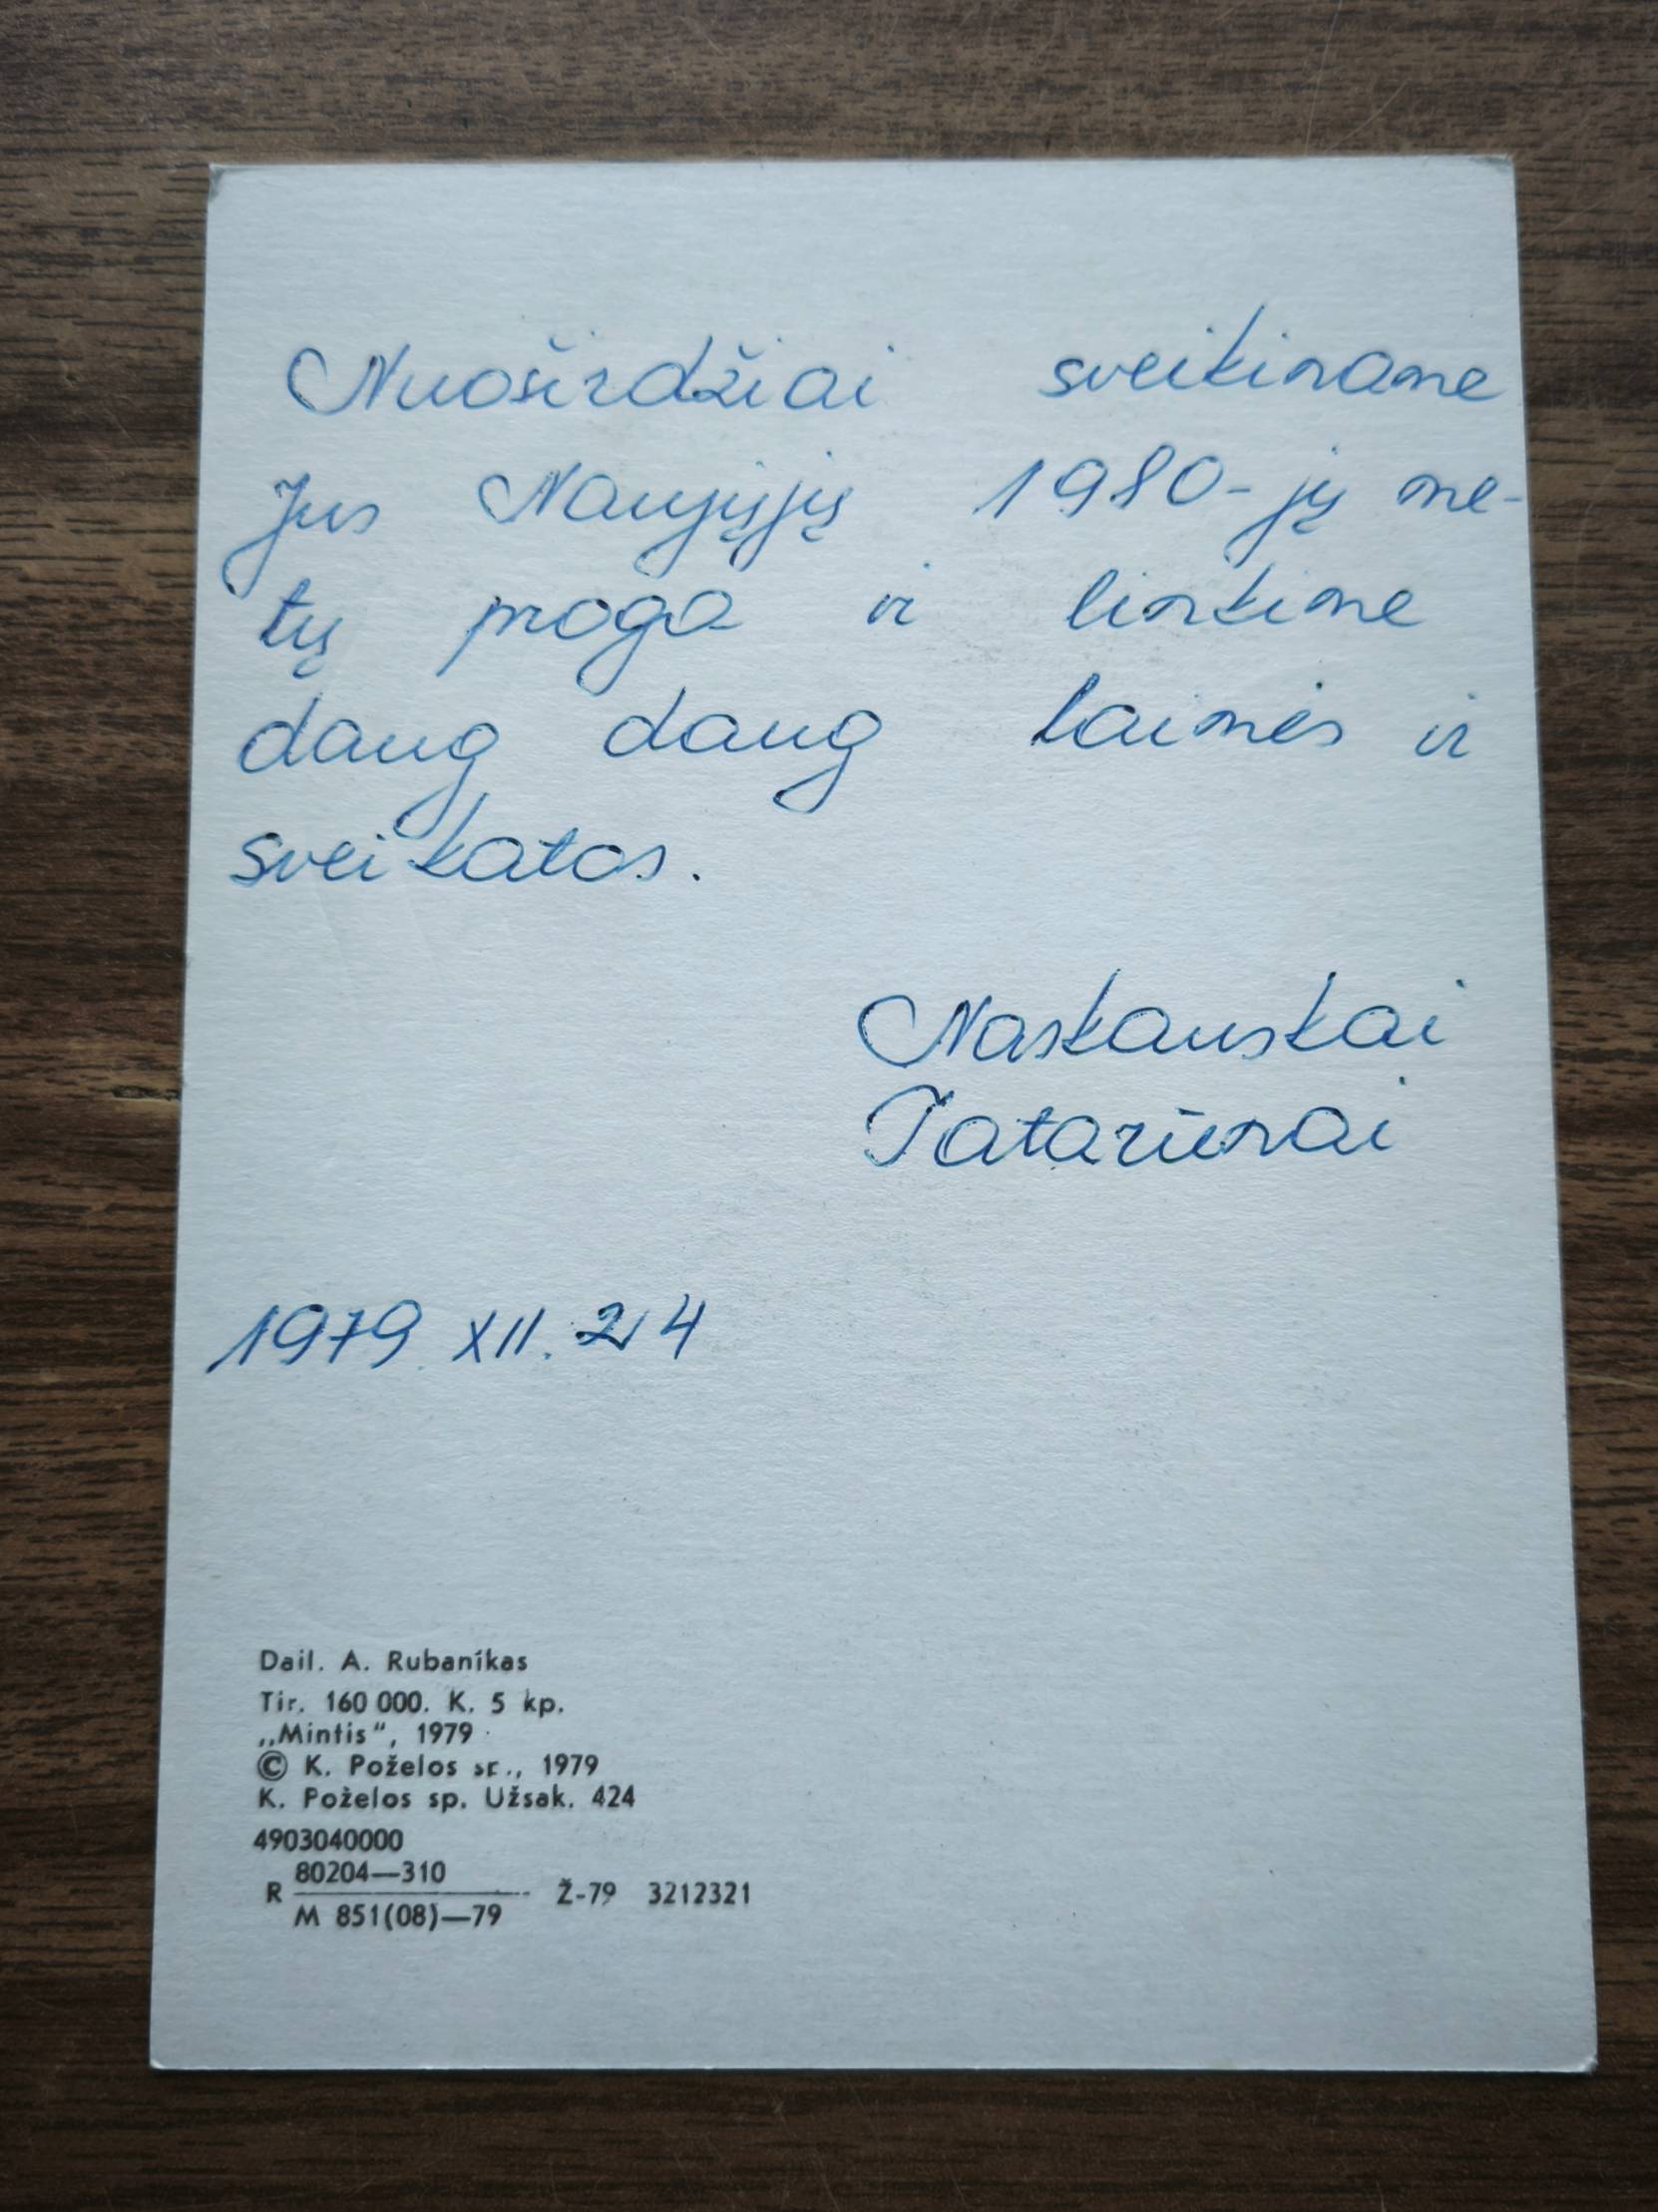 Nuoširdžiai sveikiname
Jus Naujųjų 1980-jų me-
tų proga ir linkime
daug daug laimės ir
sveikatos.
Naskauskai
Tatarūnai
1979. XII. 24
Dail. A. Rubanikas
Tir. 160 000. K. 5 kp.
„Mintis“, 1979
© K. Poželos sp., 1979
K. Poželos sp. Užsak. 424
4903040000
80204—310
R Ž-79 3212321
M 851(08)—79